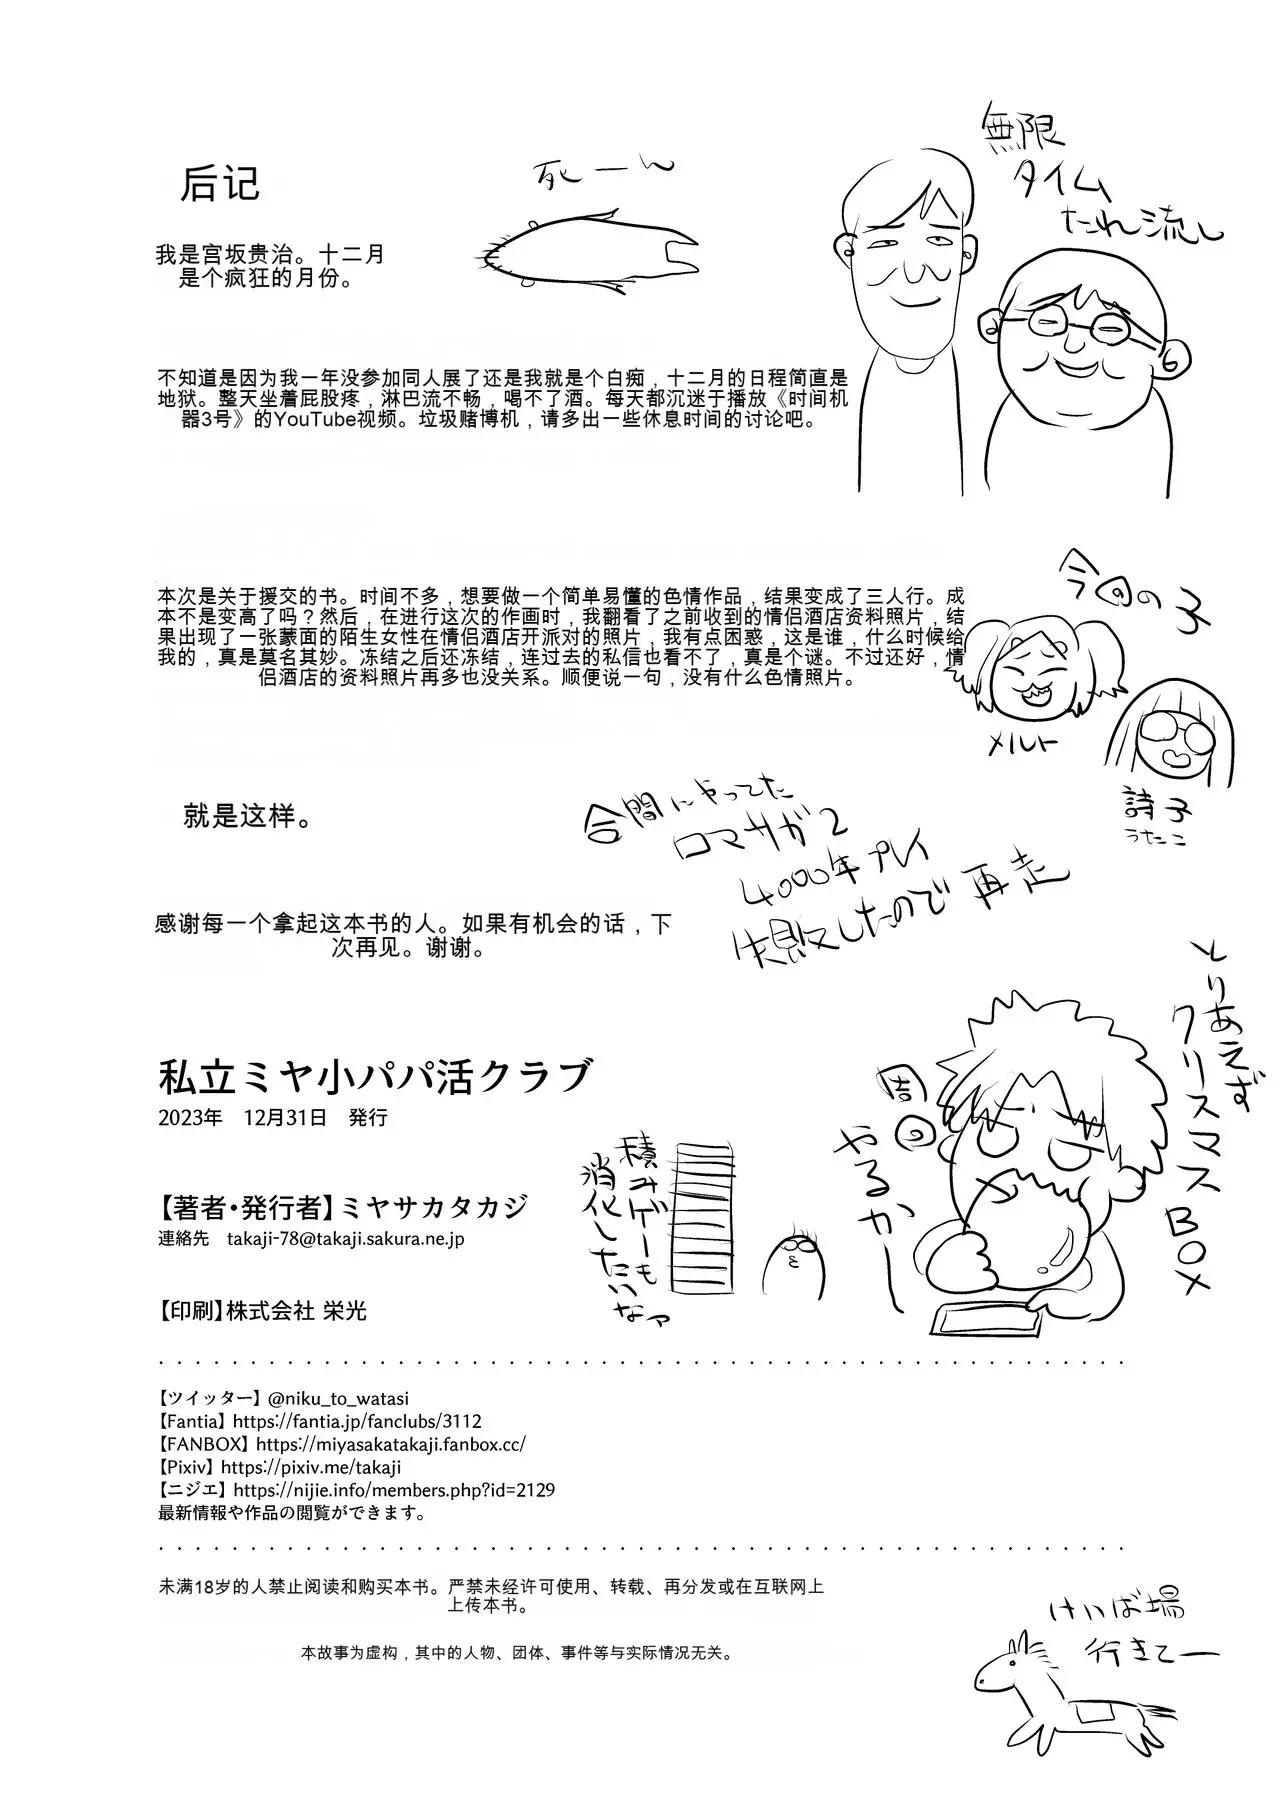 后记
死ーん
無限
タイム
たれ流し
我是宫坂贵治。十二月
是个疯狂的月份。
不知道是因为我一年没参加同人展了还是我就是个白痴，十二月的日程简直是
地狱。整天坐着屁股疼，淋巴流不畅，喝不了酒。每天都沉迷于播放《时间机
器3号》的YouTube视频。垃圾赌博机，请多出一些休息时间的讨论吧。
今回の子
本次是关于援交的书。时间不多，想要做一个简单易懂的色情作品，结果变成了三人行。成
本不是变高了吗？然后，在进行这次的作画时，我翻看了之前收到的情侣酒店资料照片，结
果出现了一张蒙面的陌生女性在情侣酒店开派对的照片，我有点困惑，这是谁，什么时候给
我的，真是莫名其妙。冻结之后还冻结，连过去的私信也看不了，真是个谜。不过还好，情
侣酒店的资料照片再多也没关系。顺便说一句，没有什么色情照片。
メルト
詩子
うたこ
就是这样。
合間にやってた
ロマサガ2
4000年プレイ
失敗したので再走
感谢每一个拿起这本书的人。如果有机会的话，下
次再见。谢谢。
とりあえず
クリスマスBOX
周回
やるかー
私立ミヤ小パパ活クラブ
2023年　12月31日　発行
積みゲーも
消化したいなァ
【著者・発行者】ミヤサカタカジ
連絡先　takaji-78@takaji.sakura.ne.jp
【印刷】株式会社 栄光
【ツイッター】@niku_to_watasi
【Fantia】https://fantia.jp/fanclubs/3112
【FANBOX】https://miyasakatakaji.fanbox.cc/
【Pixiv】https://pixiv.me/takaji
【ニジエ】https://nijie.info/members.php?id=2129
最新情報や作品の閲覧ができます。
未满18岁的人禁止阅读和购买本书。严禁未经许可使用、转载、再分发或在互联网上
上传本书。
本故事为虚构，其中的人物、团体、事件等与实际情况无关。
けいば場
行きてー